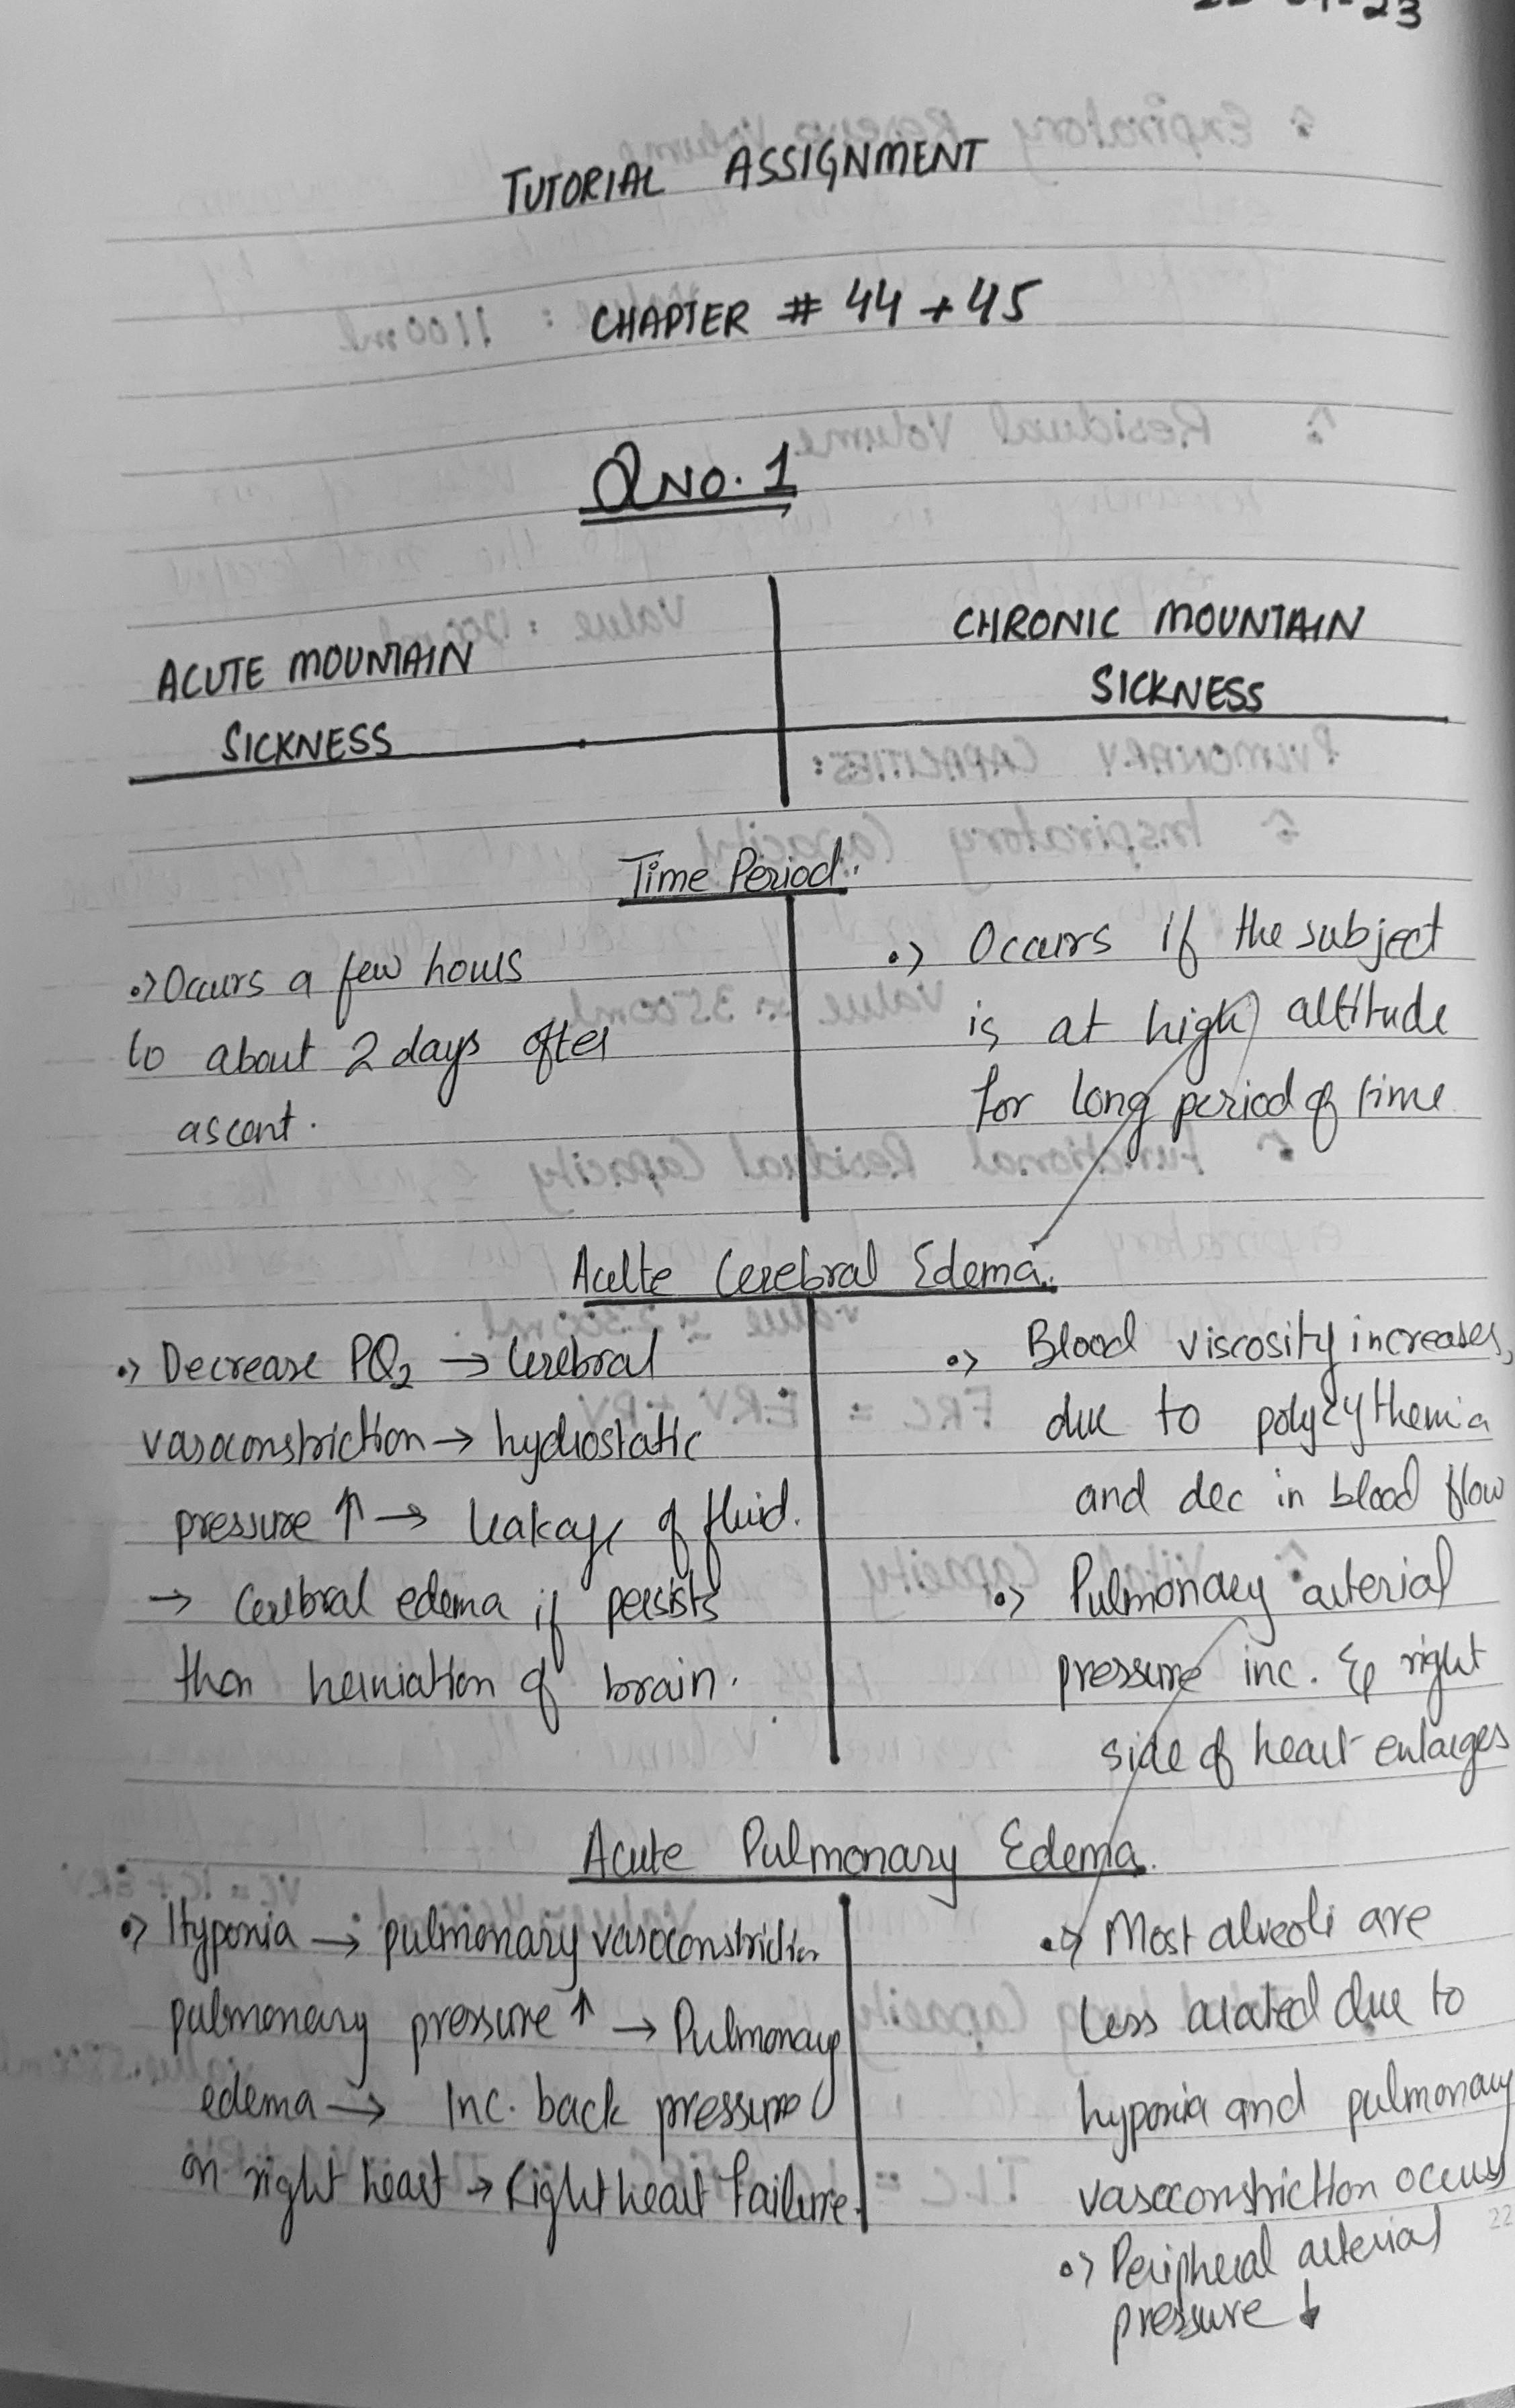 23
TUTORIAL ASSIGNMENT
CHAPTER # 44 + 45
QNO. 1
ACUTE MOUNTAIN
SICKNESS
CHRONIC MOUNTAIN
SICKNESS
Time Period.
•> Occurs a few hours
to about 2 days after
ascent.
•> Occurs if the subject
is at high altitude
for long period of time
Acute Cerebral Edema.
•> Decrease PO2 → Cerebral
vasoconstriction → hydrostatic
pressure ↑ → leakage of fluid.
→ Cerebral edema if persists
then herniation of brain.
•> Blood viscosity increases,
due to polycythemia
and dec in blood flow
•> Pulmonary arterial
pressure inc. & right
side of heart enlarges
Acute Pulmonary Edema.
•> Hypoxia → pulmonary vasoconstriction
pulmonary pressure ↑ → Pulmonary
edema → Inc. back pressure
on right heart → Right heart Failure.
•> Most alveoli are
less arated due to
hypoxia and pulmonary
vasoconstriction occurs
•> Peripheral arterial
pressure ↓
22